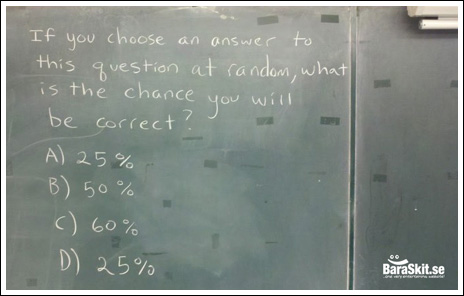 If you choose an answer to
this question at random, what
is the chance you will
be correct?
A) 25%
B) 50%
C) 60%
D) 25%
BaraSkit.se
...one very entertaining website!